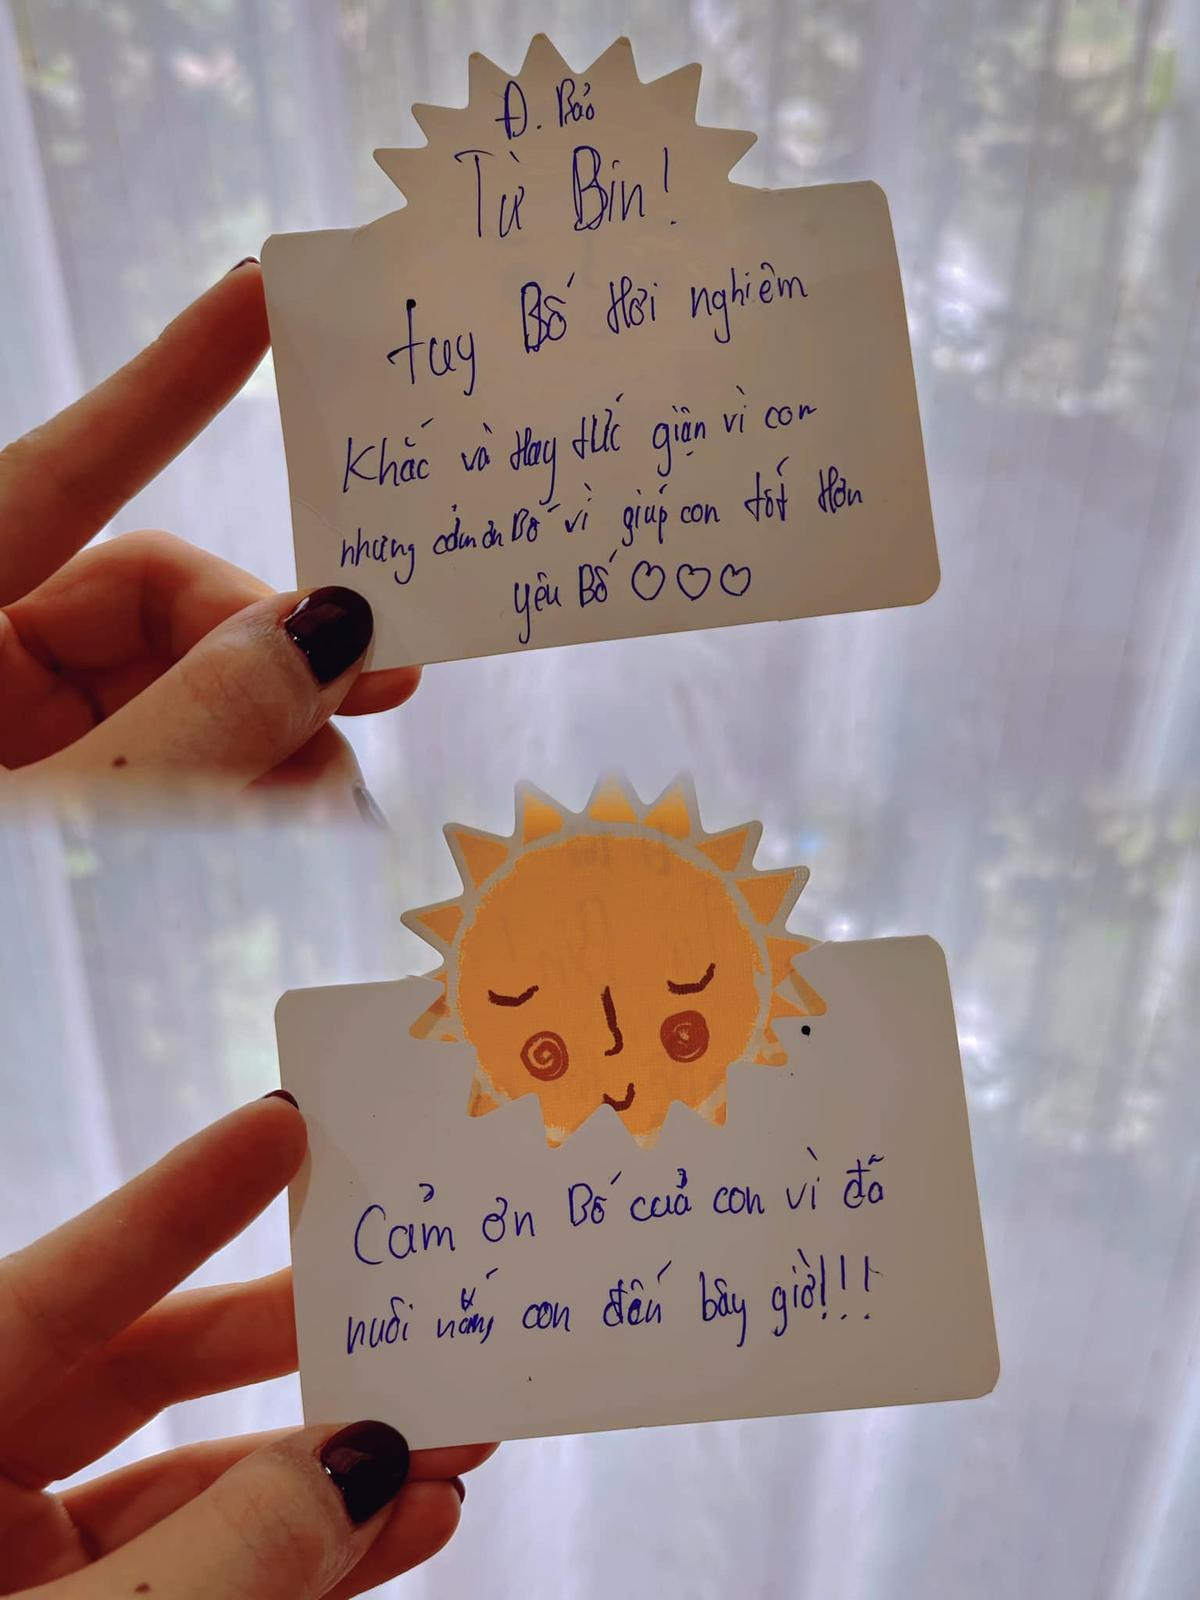 Đ. Bảo
Từ Bin!
tuy Bố Hơi nghiêm
Khắc và Hay tức giận vì con
nhưng cảm ơn Bố vì giúp con tốt Hơn
yêu Bố ♡♡♡
Cảm ơn Bố cuả con vì đã
nuôi nấng con đến bây giờ!!!